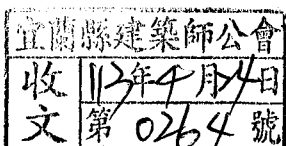 宜蘭縣建築師公會
收文
113年4月24日
第0264號